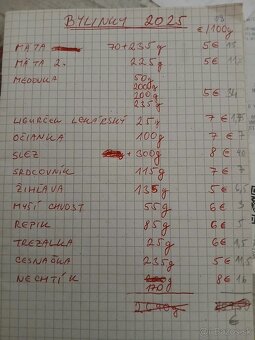 BYLINKY 2025
€/100g
MÄTA 70+235g 5€ 15
MÄTA 2. 225g 5€ 11,5
MEDOVKA 50g
200g
200g
235g 5€ 34
UHORČEK LEKÁRSKY 25g 7€ 1,75
OČIANKA 100g 7€ 7
SLEZ +300g 8€ 40
SRDCOVNÍK 115g 7€ 7
ŽIHĽAVA 135g 5€ 6,5
MYŠÍ CHVOST 55g 6€ 3
REPÍK 85g 6€ 5
TREZALKA 25g 6€ 1,5
CESNAČKA 235g 5€ 11,5
NECHTÍK 170g 8€ 16
€